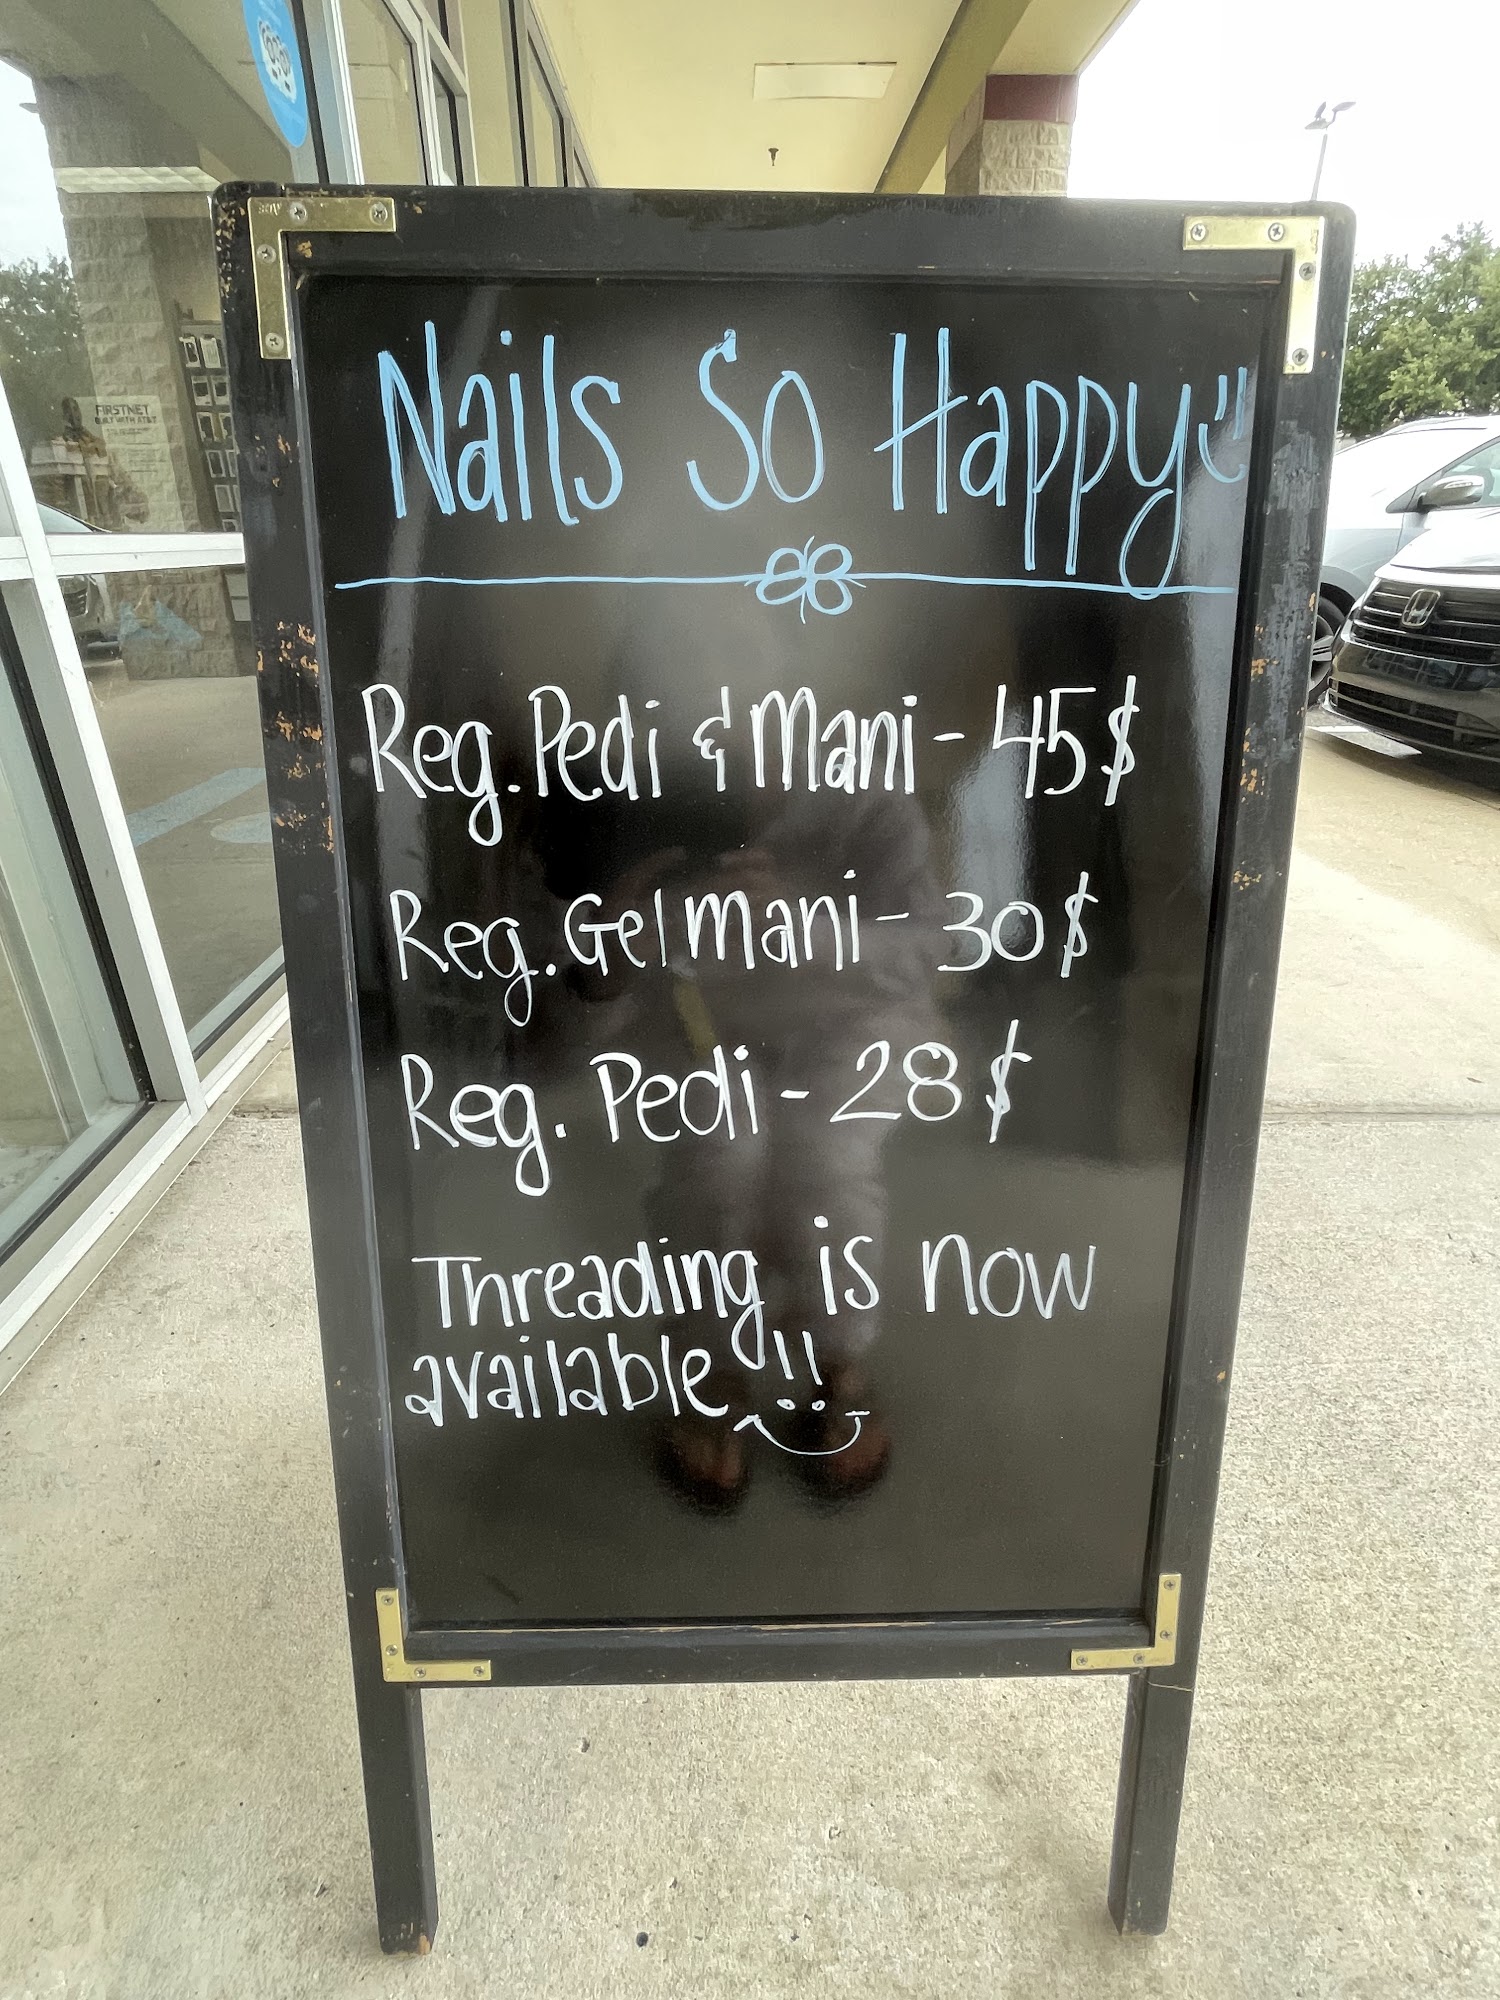 Nails So Happy
Reg. Pedi & Mani - 45$
Reg. Gel mani - 30$
Reg. Pedi - 28$
Threading is now
available !!
FIRSTNET
BUILT WITH AT&T